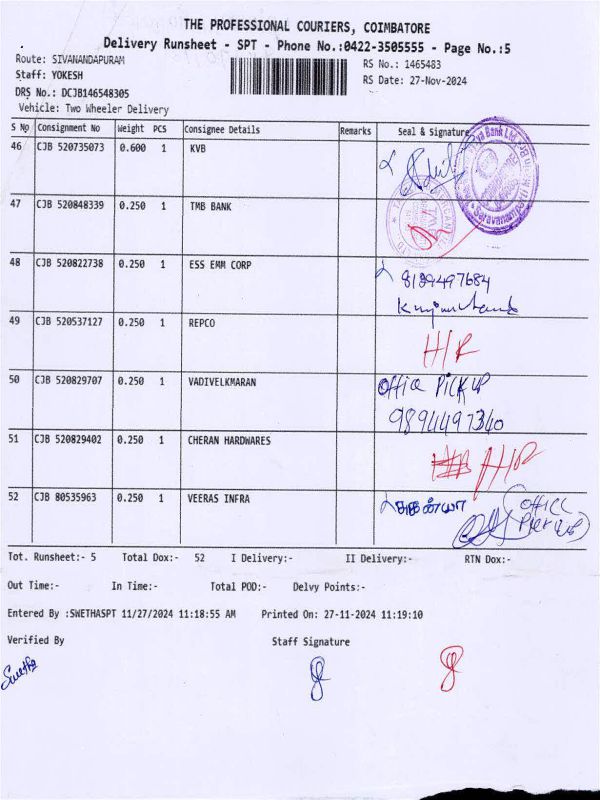 THE PROFESSIONAL COURIERS, COIMBATORE
Delivery Runsheet - SPT - Phone No.:0422-3505555 - Page No.:5
Route: SIVANANDAPURAM
RS No.: 1465483
Staff: YOKESH
RS Date: 27-Nov-2024
DRS No.: DCJB146548305
Vehicle: Two Wheeler Delivery
S No Consignment No Weight PCS Consignee Details Remarks Seal & Signature
46 CJB 520735073 0.600 1 KVB
47 CJB 520848339 0.250 1 TMB BANK
48 CJB 520822738 0.250 1 ESS EMM CORP
8129497684
49 CJB 520537127 0.250 1 REPCO
H/R
50 CJB 520829707 0.250 1 VADIVELKMARAN office Pick up
9894497340
51 CJB 520829402 0.250 1 CHERAN HARDWARES
52 CJB 80535963 0.250 1 VEERAS INFRA
office
Pick up
Tot. Runsheet:- 5 Total Dox:- 52 I Delivery:- II Delivery:- RTN Dox:-
Out Time:- In Time:- Total POD:- Delvy Points:-
Entered By :SWETHASPT 11/27/2024 11:18:55 AM Printed On: 27-11-2024 11:19:10
Verified By Staff Signature
Swetha